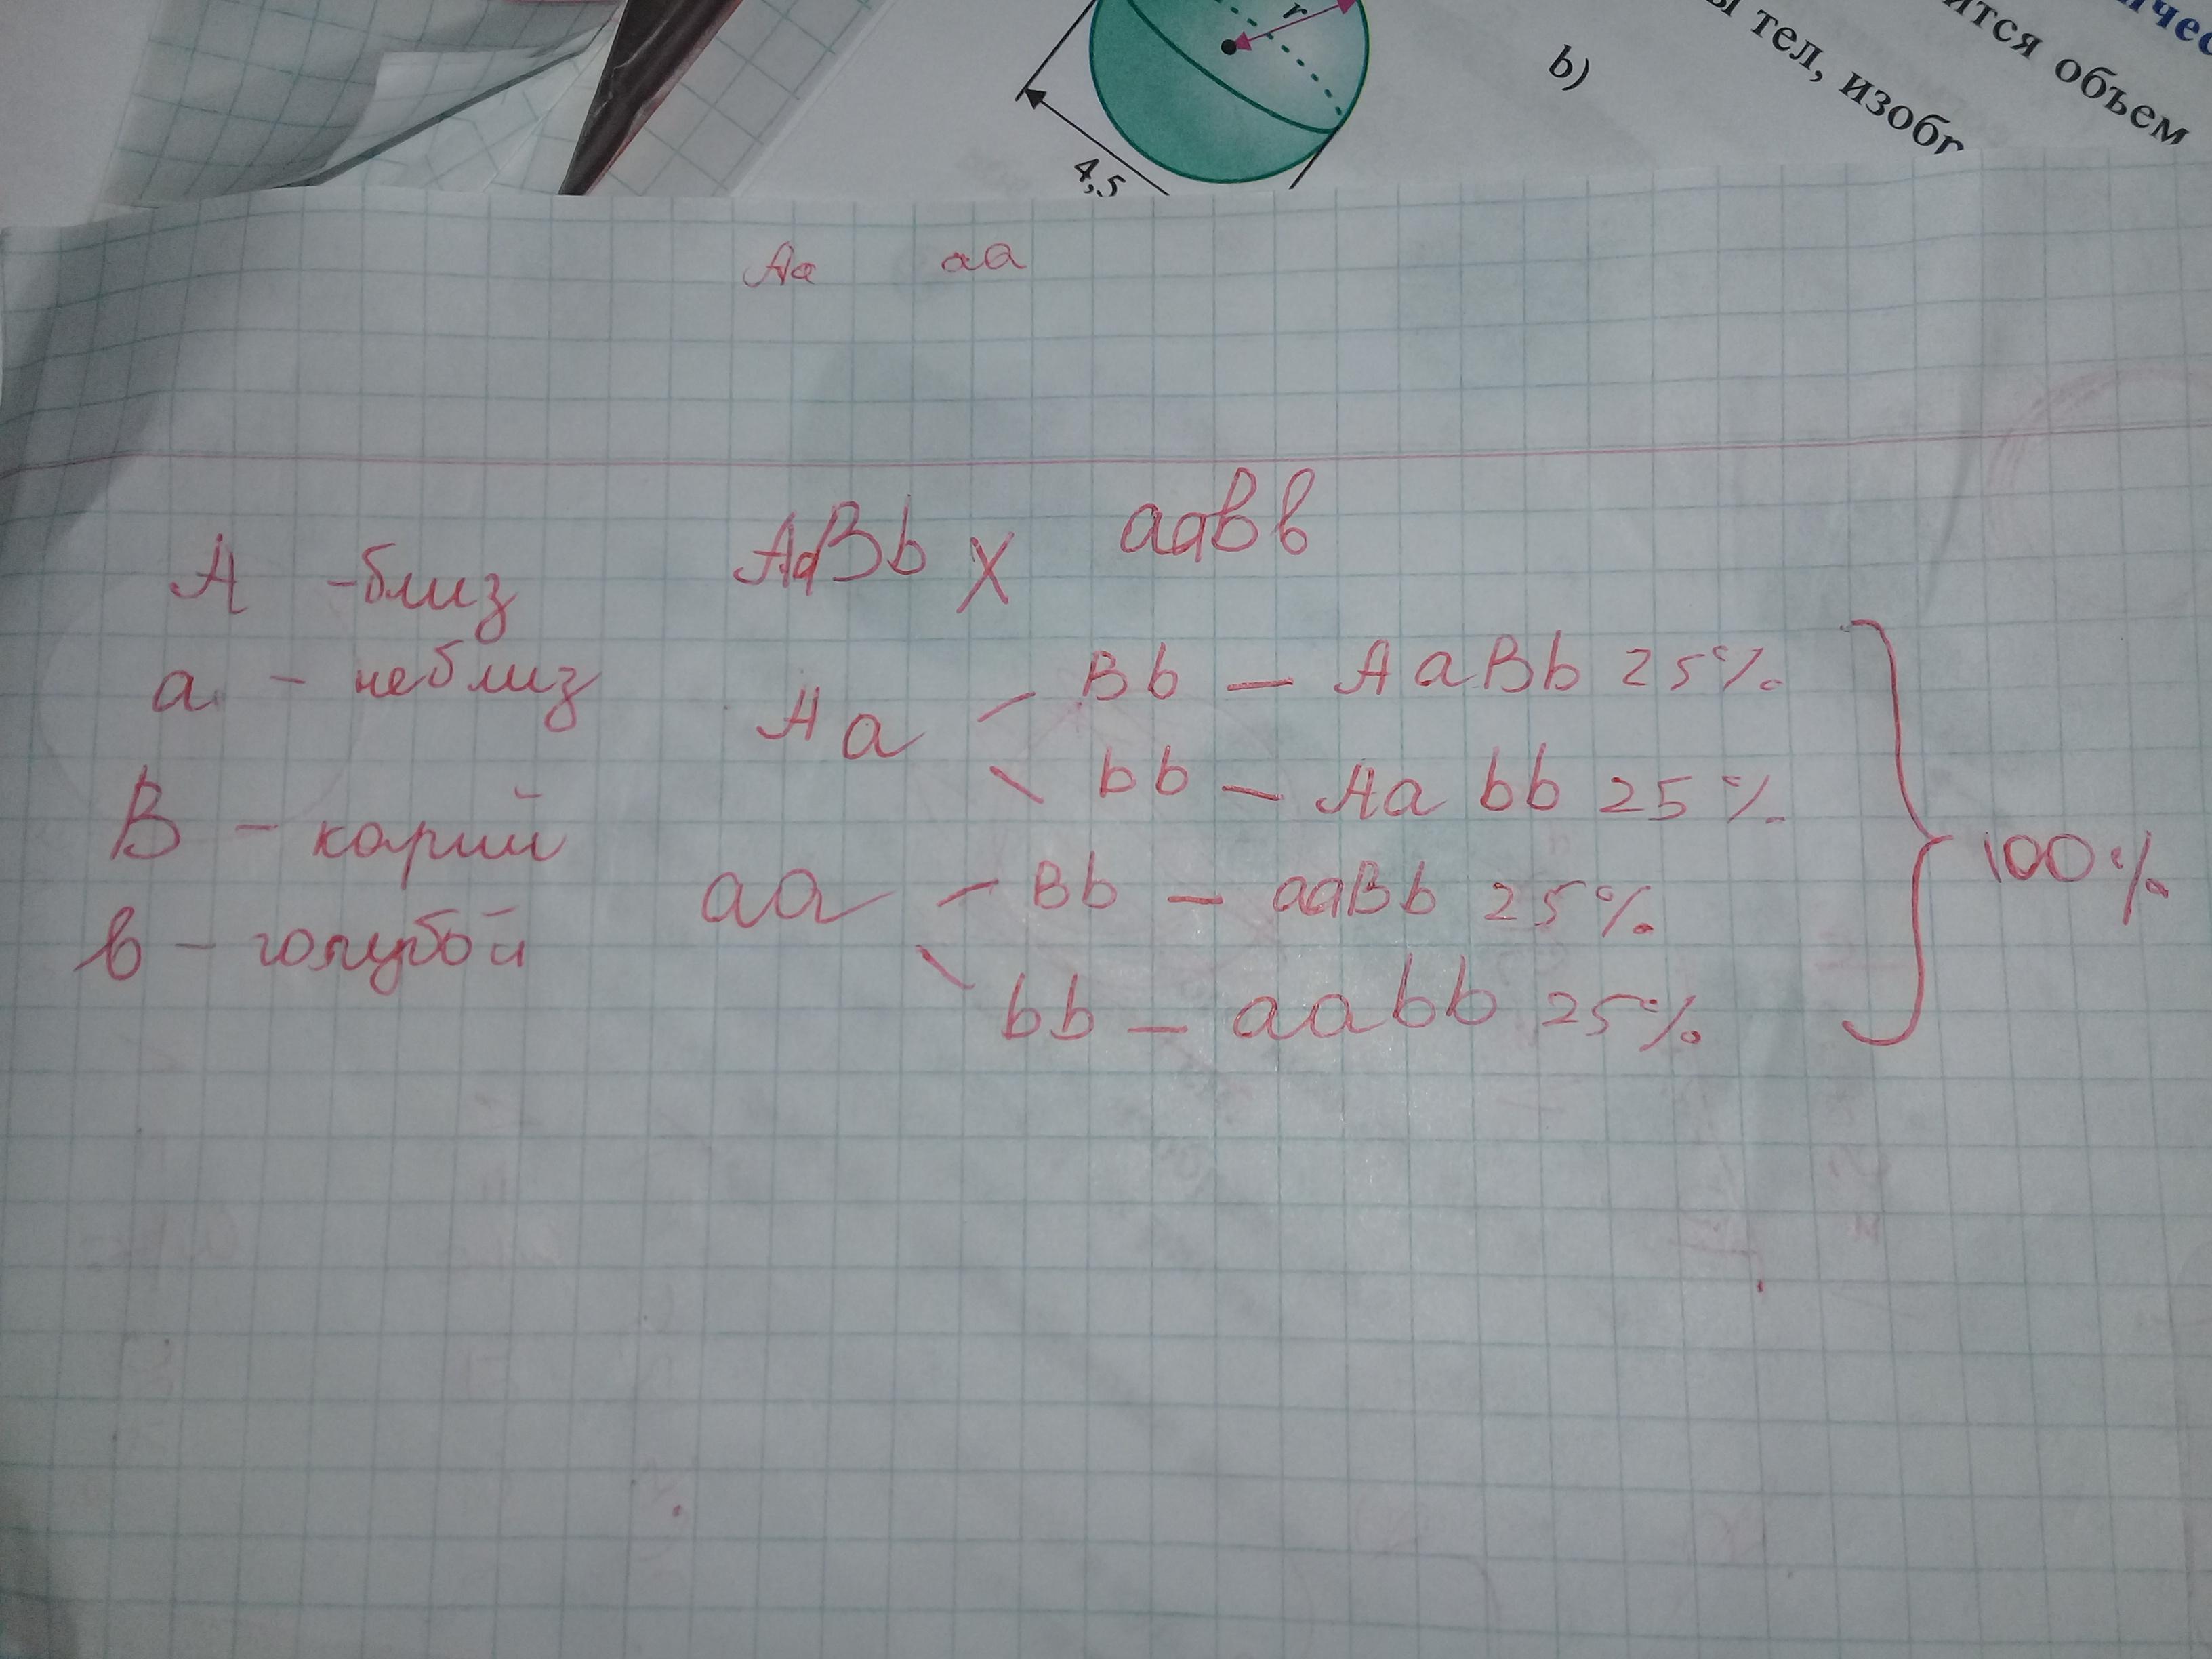 r
4,5
b)
тся объем
тел, изобр
Aa aa
AaBb X aaBв
A - близ
a - неблиз
B - карий
в - голубой
Aa - Bb - AaBb 25%
\ bb - Aa bb 25%
aa - Bb - aaBb 25%
\ bb - aabb 25%
100%